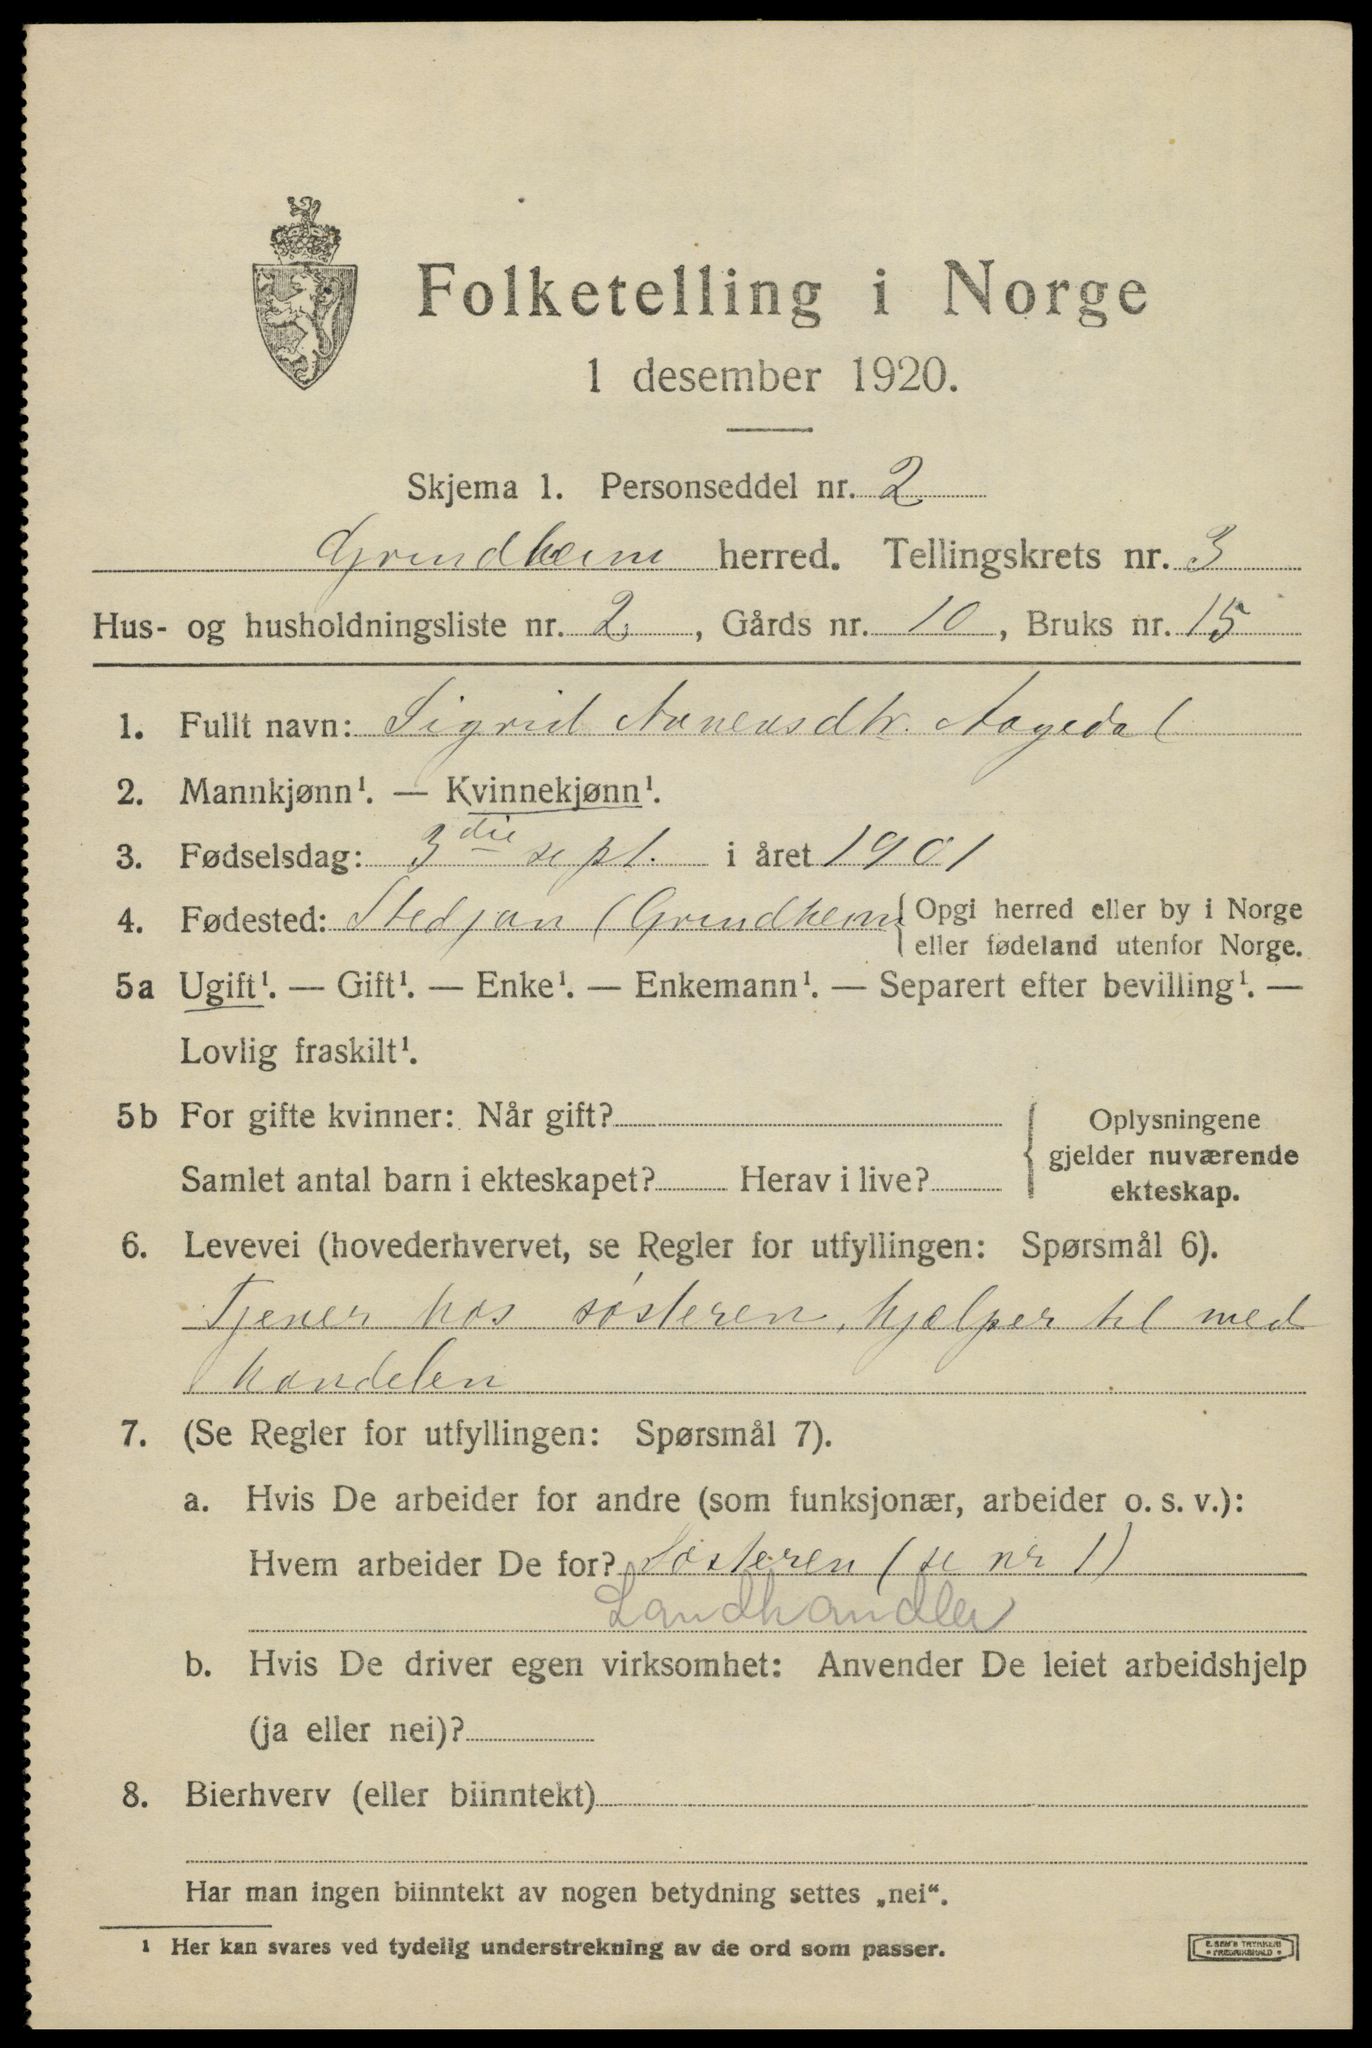 Folketelling i Norge
1 desember 1920.
Skjema 1. Personseddel nr. 2
Grindheim herred. Tellingskrets nr. 3
Hus- og husholdningsliste nr. 2, Gårds nr. 10, Bruks nr. 15
1. Fullt navn: Sigrid Aanensdtr. Aagedal
2. Mannkjønn¹. — Kvinnekjønn¹.
3. Fødselsdag: 3die sept. i året 1901
4. Fødested: Stedjan (Grindheim { Opgi herred eller by i Norge
eller fødeland utenfor Norge.
5a Ugift¹. — Gift¹. — Enke¹. — Enkemann¹. — Separert efter bevilling¹. —
Lovlig fraskilt¹.
5b For gifte kvinner: Når gift?
Samlet antal barn i ekteskapet? Herav i live?
Oplysningene
gjelder nuværende
ekteskap.
6. Levevei (hovederhvervet, se Regler for utfyllingen: Spørsmål 6).
Tjener hos søsteren, hjælper til med
handelen
7. (Se Regler for utfyllingen: Spørsmål 7).
a. Hvis De arbeider for andre (som funksjonær, arbeider o. s. v.):
Hvem arbeider De for? Søsteren (se nr 1)
Landhandler
b. Hvis De driver egen virksomhet: Anvender De leiet arbeidshjelp
(ja eller nei)?
8. Bierhverv (eller biinntekt)
Har man ingen biinntekt av nogen betydning settes „nei“.
¹ Her kan svares ved tydelig understrekning av de ord som passer.
E. SEM'S TRYKKERI
• FREDRIKSHALD •